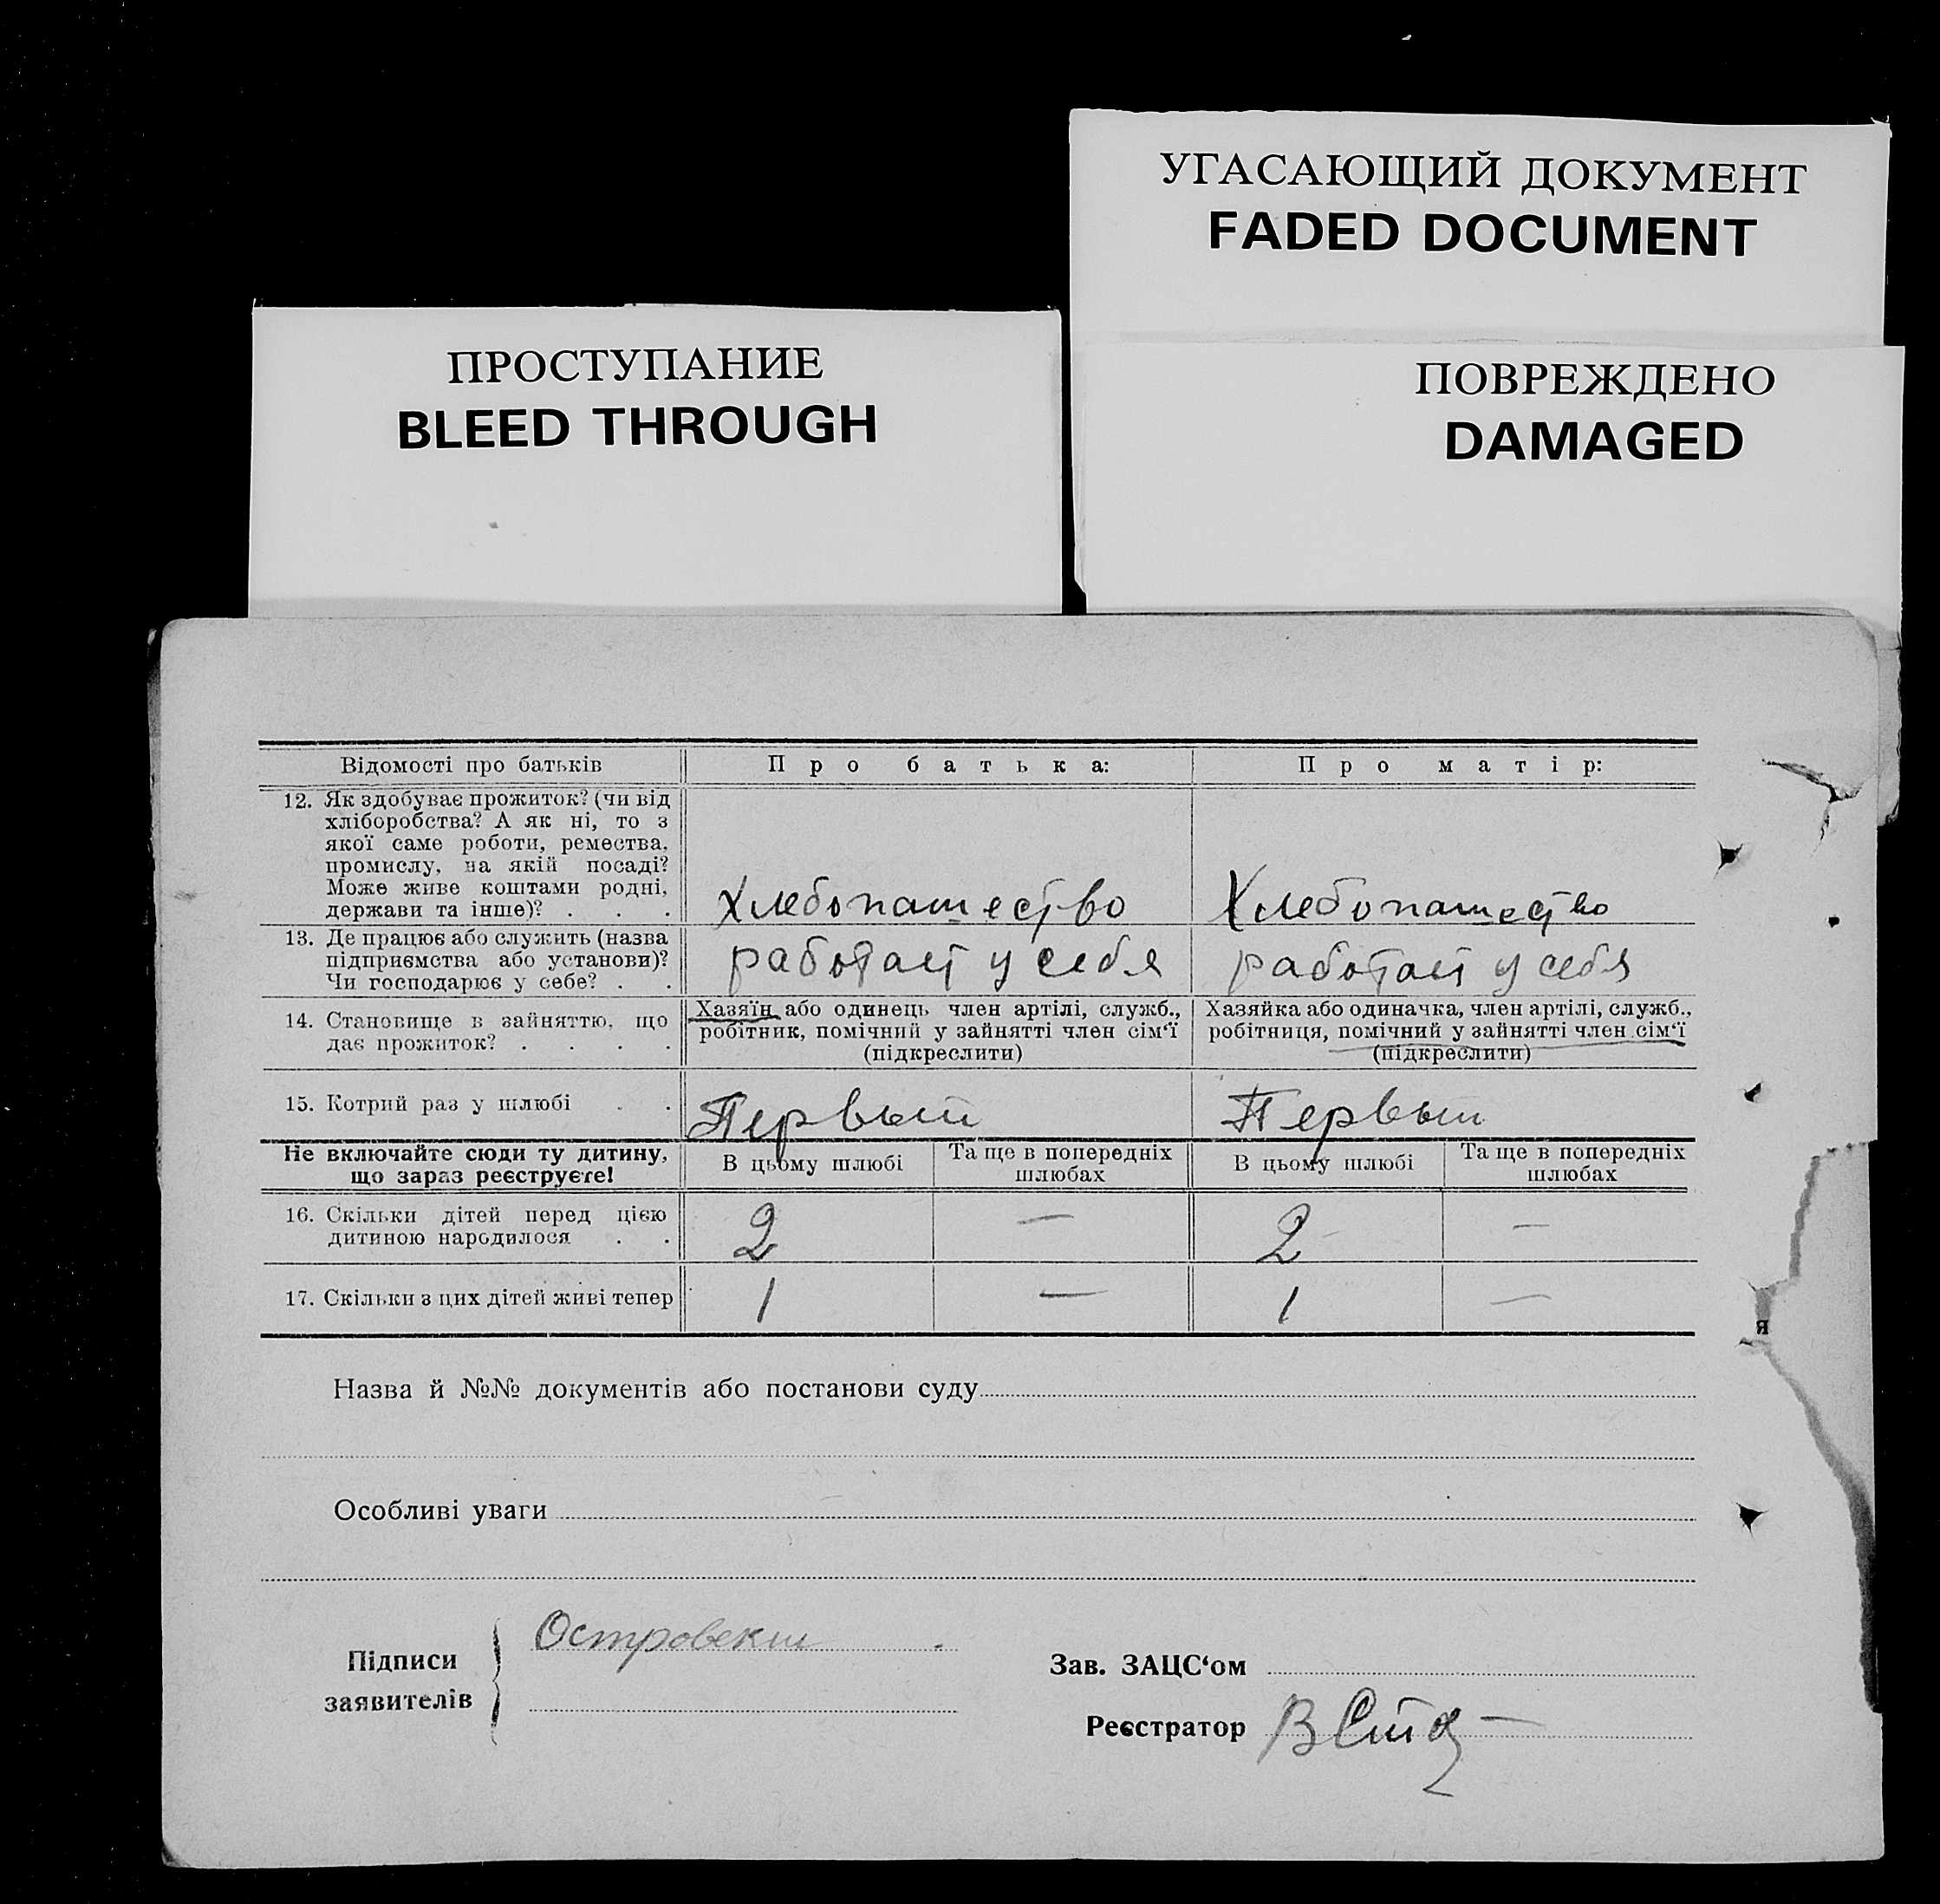 УГАСАЮЩИЙ ДОКУМЕНТ
FADED DOCUMENT
ПРОСТУПАНИЕ
BLEED THROUGH
ПОВРЕЖДЕНО
DAMAGED
Відомості про батьків Про батька: Про матір:
12. Як здобуває прожиток? (чи від
хліборобства? А як ні, то з
якої саме роботи, ремества,
промислу, на якій посаді?
Може живе коштами родні,
держави та інше)? . . .
Хлебопашество Хлебопашество
13. Де працює або служить (назва
підприємства або установи)?
Чи господарює у себе? . .
работает у себя работает у себя
14. Становище в зайняттю, що
дає прожиток? . . . .
Хазяїн або одинець член артілі, служб.,
робітник, помічний у зайнятті член сім'ї
(підкреслити)
Хазяйка або одиначка, член артілі, служб.,
робітниця, помічний у зайнятті член сім'ї
(підкреслити)
15. Котрий раз у шлюбі . . Первый Первый
Не включайте сюди ту дитину,
що зараз реєструєте!
В цьому шлюбі
Та ще в попередніх
шлюбах
В цьому шлюбі
Та ще в попередніх
шлюбах
16. Скільки дітей перед цією
дитиною народилося . .
2 — 2 —
17. Скільки з цих дітей живі тепер 1 — 1 —
я
Назва й №№ документів або постанови суду
Особливі уваги
Підписи
заявителів
Зав. ЗАЦС'ом
Реєстратор